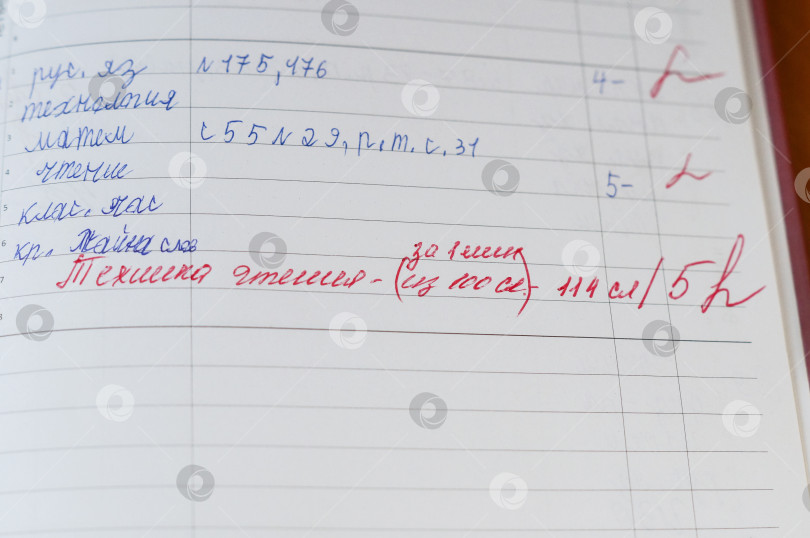 1 рус. яз N 175, 176 4-
2 технология
3 матем с 55 N 29, р. т. с. 31
4 чтение 5-
5 клас. час
6 кр. Тайна слов
за 1 мин
7 Техника чтения - (из 100 сл.) - 114 сл / 5
8